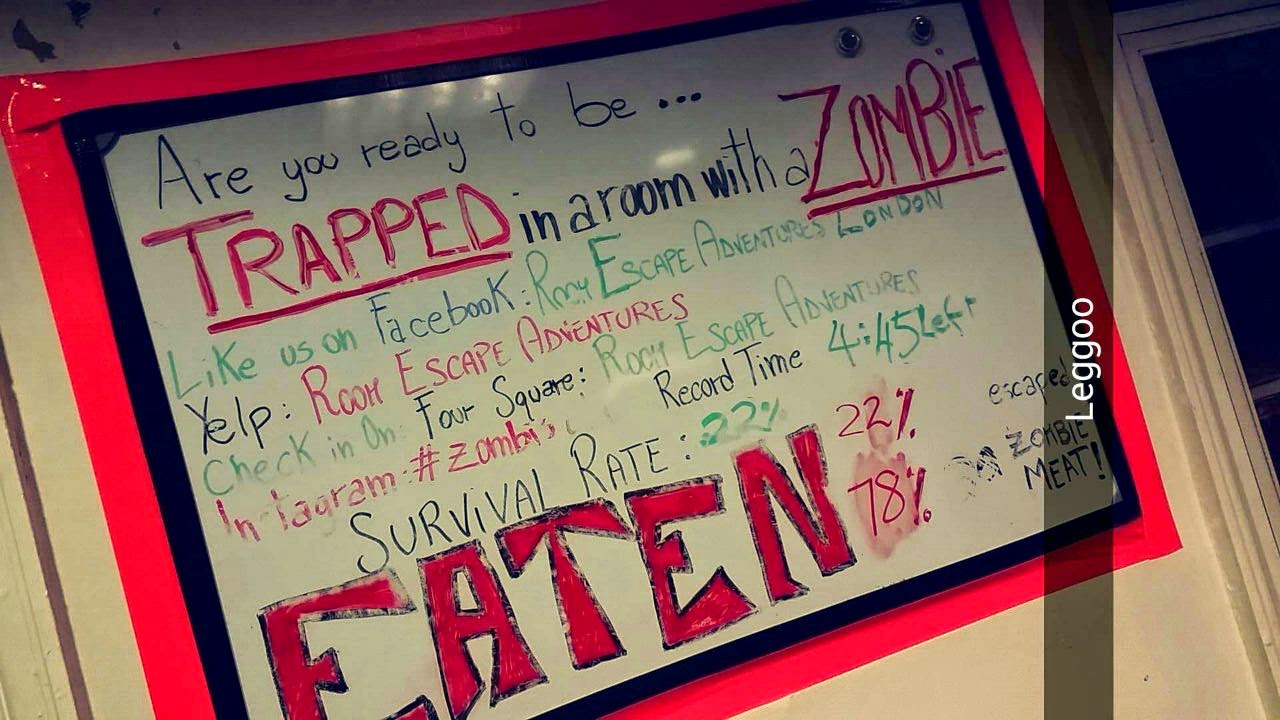 Are you ready to be ...
TRAPPED in a room with a ZOMBIE
Like us on Facebook: Room Escape Adventures London
Yelp: Room Escape Adventures
Check in On: Four Square: Room Escape Adventures
Instagram: #Zombi's
Record Time 4:45 Left
SURVIVAL RATE: 22% 22% escaped
EATEN 78% ZOMBIE MEAT!
Leggoo